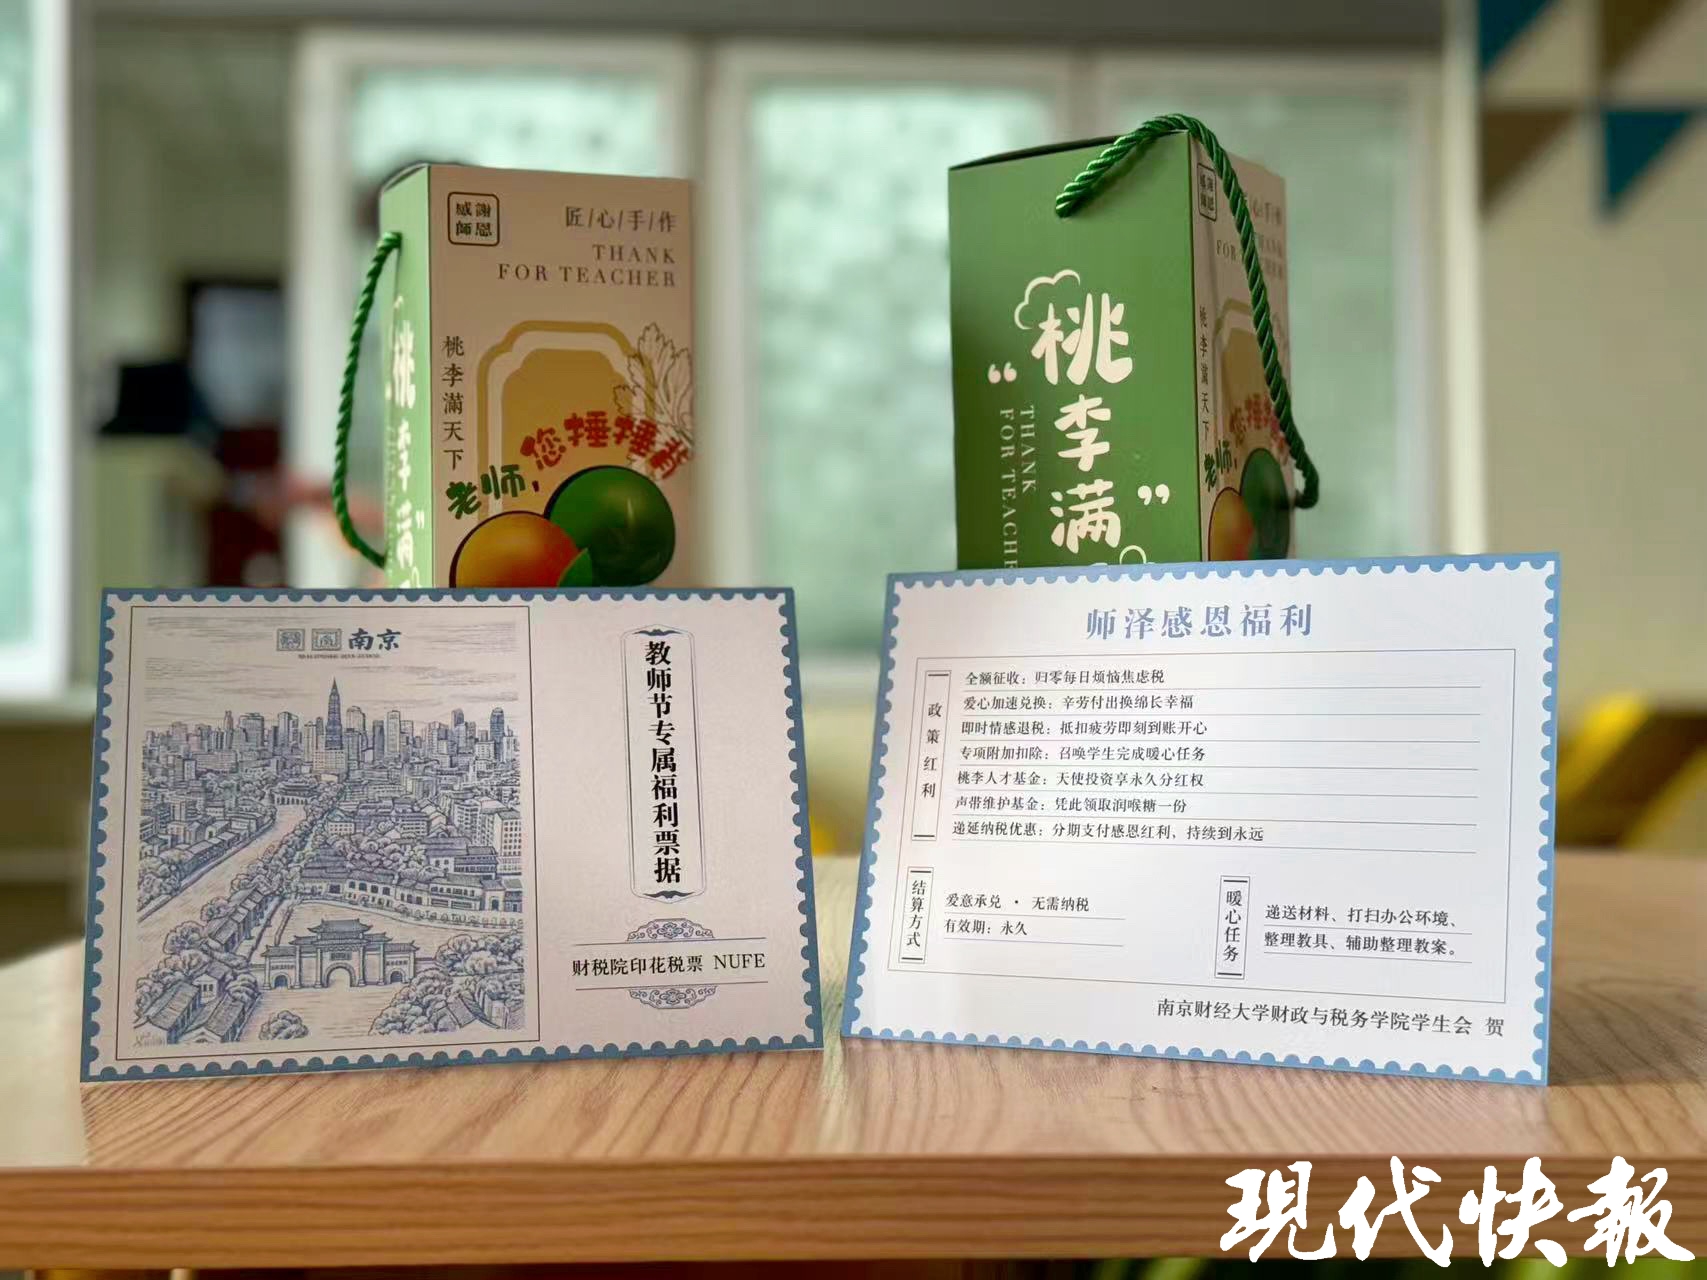 感謝
師恩
匠/心/手/作
THANK
FOR TEACHER
桃李滿天下
老师,
您捶捶莉
桃李满
感謝
師恩
心/手/作
THANK
FOR
桃李滿天下
老师,
您捶捶
“桃李满”
THANK
FOR TEACHER
南京
教师节专属福利票据
财税院印花税票 NUFE
师泽感恩福利
政策红利
全额征收：归零每日烦恼焦虑税
爱心加速兑换：辛劳付出换绵长幸福
即时情感退税：抵扣疲劳即刻到账开心
专项附加扣除：召唤学生完成暖心任务
桃李人才基金：天使投资享永久分红权
声带维护基金：凭此领取润喉糖一份
递延纳税优惠：分期支付感恩红利、持续到永远
结算方式
爱意承兑 · 无需纳税
有效期：永久
暖心任务
递送材料、打扫办公环境、
整理教具、辅助整理教案。
南京财经大学财政与税务学院学生会 贺
现代快報